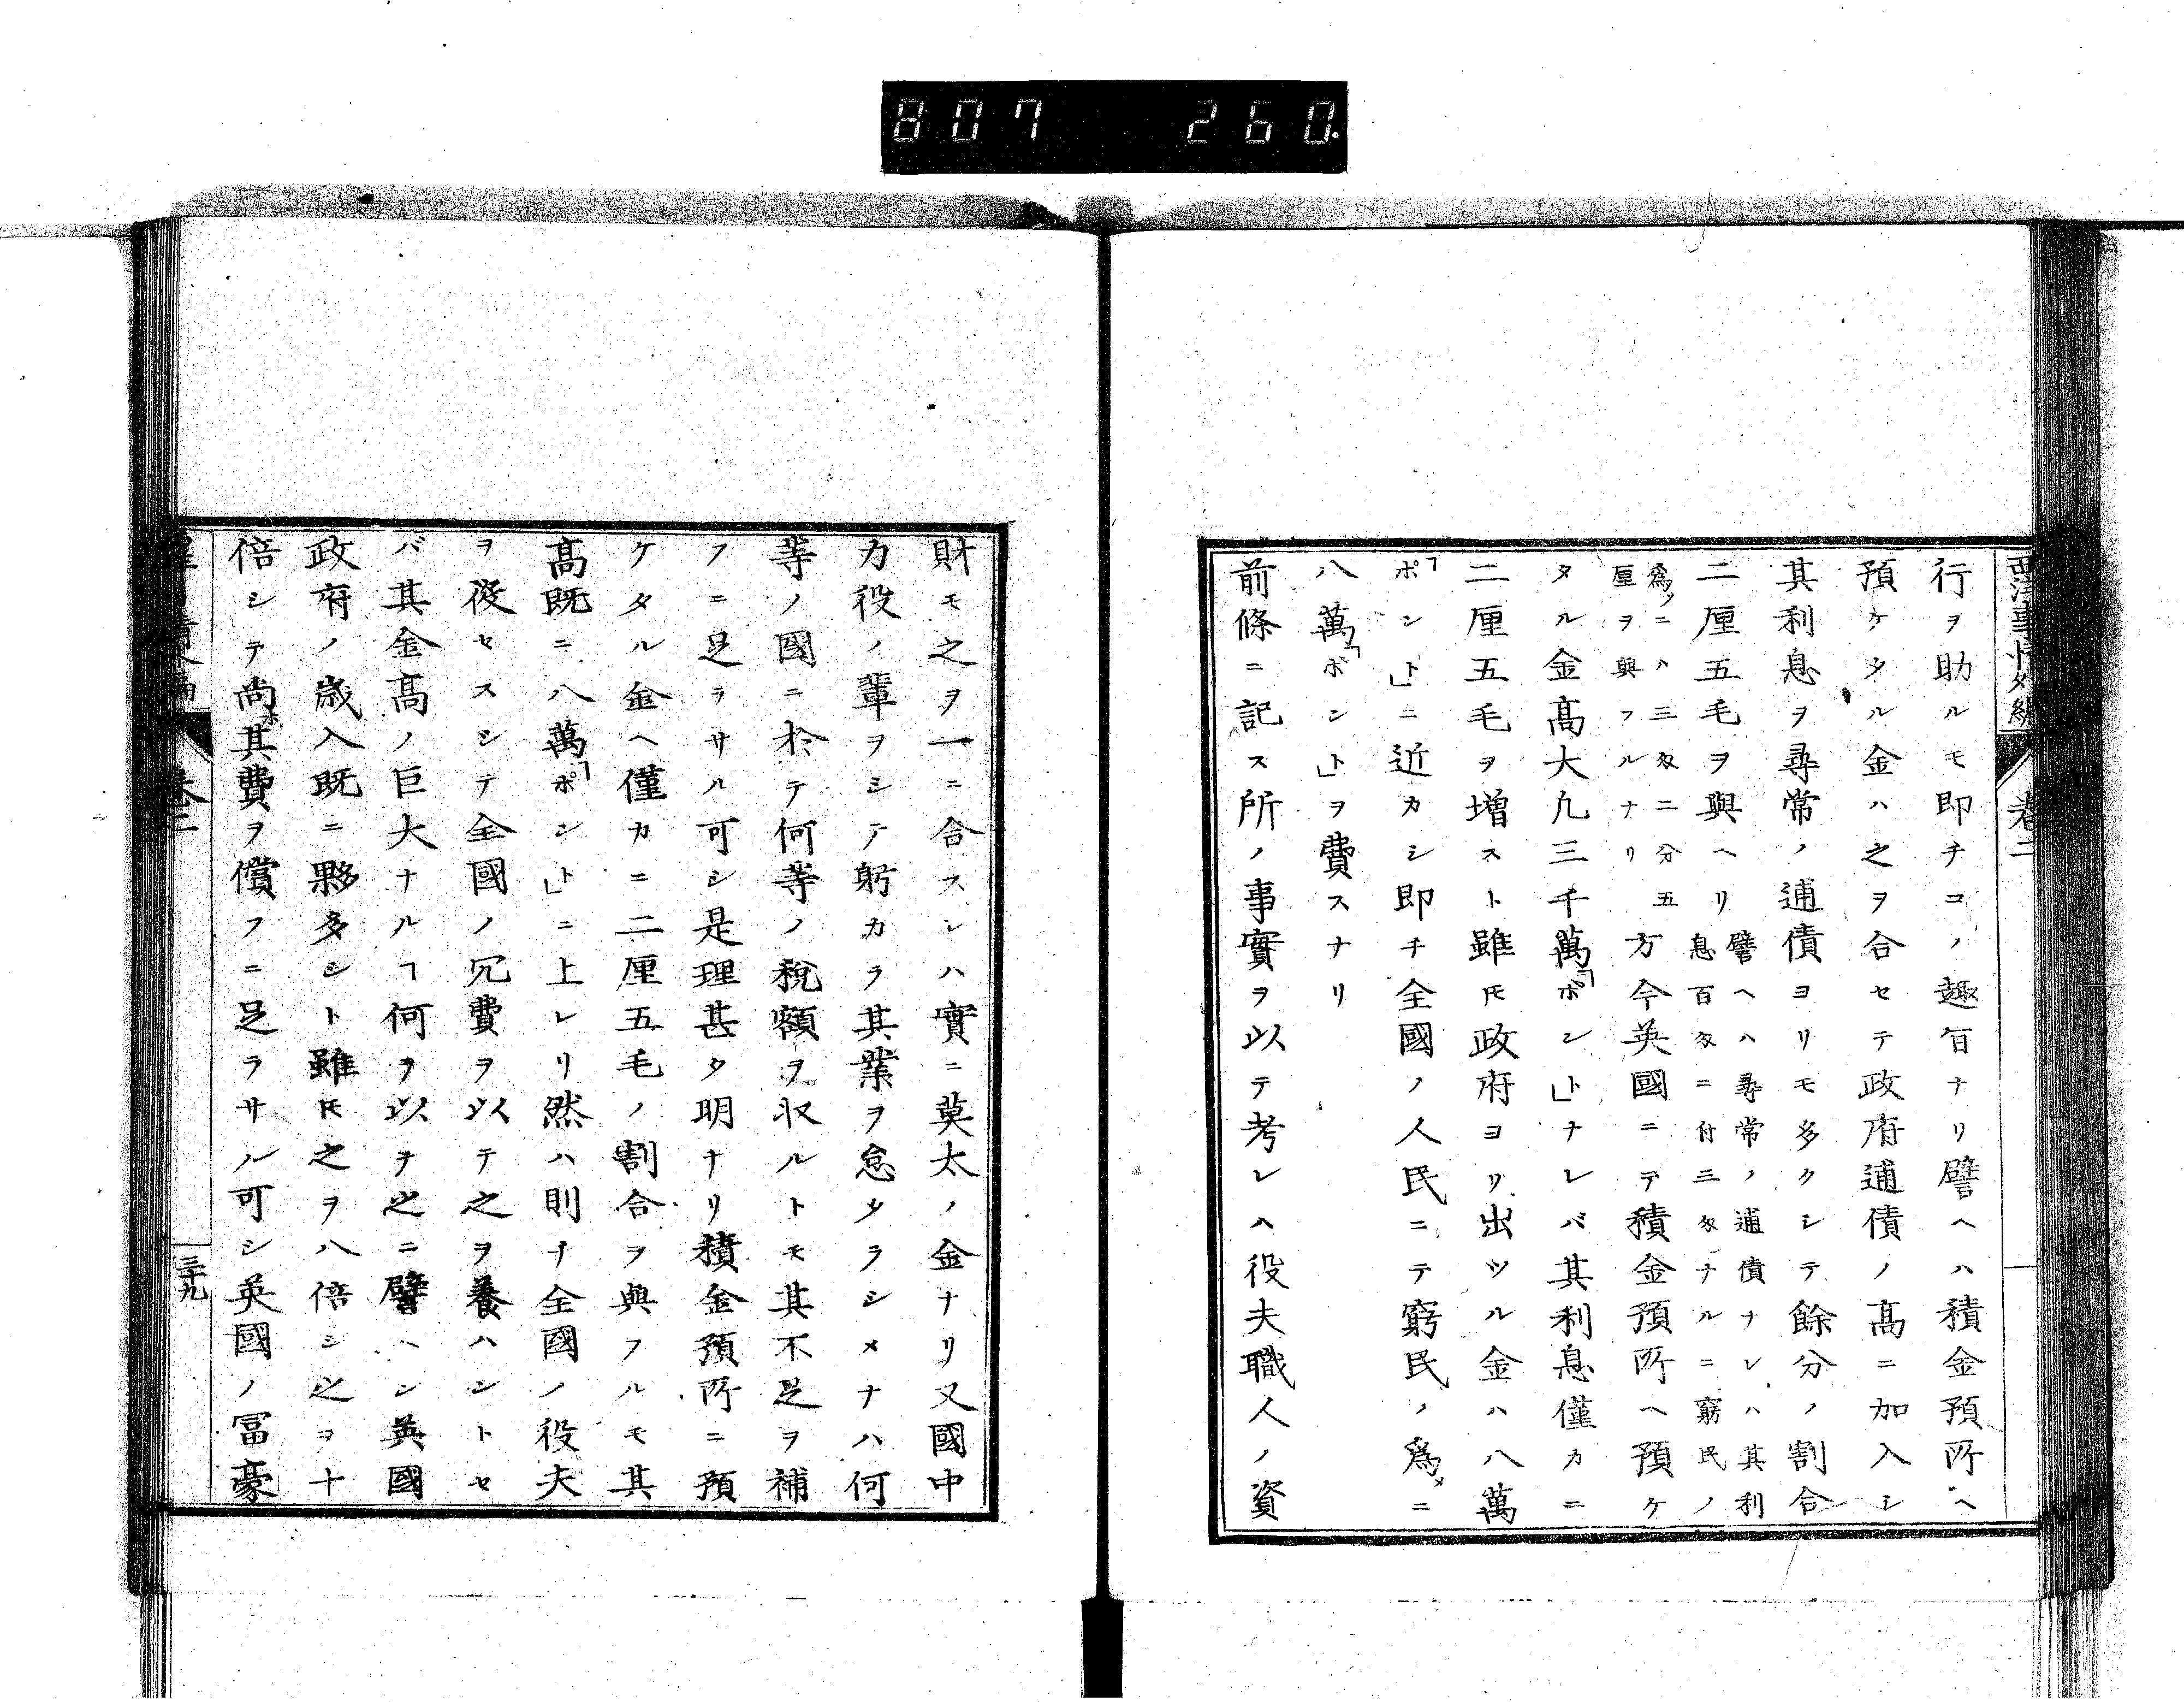 807 260.
西洋事情外編 卷二
行ヲ助ルモ即チコノ趣旨ナリ譬ヘハ積金預所ヘ
預ケタル金ハ之ヲ合セテ政府逋債ノ高ニ加入シ
其利息ヲ尋常ノ逋債ヨリモ多クシテ餘分ノ割合
二厘五毛ヲ與ヘリ譬ヘハ尋常ノ逋債ナレハ其利
息百匁ニ付三匁ナルニ窮民ノ
爲ノニハ三匁二分五
厘ヲ與フルナリ方今英國ニテ積金預所ヘ預ケ
タル金髙大凢三千萬「ポンド」ナレバ其利息僅カニ
二厘五毛ヲ増スト雖𪜈政府ヨリ出ツル金ハ八萬
「ポンド」ニ近カシ即チ全國ノ人民ニテ窮民ノ爲メニ
八萬「ポンド」ヲ費スナリ
前條ニ記ス所ノ事實ヲ以テ考レハ役夫職人ノ資
財モ之ヲ一ニ合スレハ實ニ莫太ノ金ナリ又國中
力役ノ輩ヲシテ躬カラ其業ヲ怠タラシメナハ何
等ノ國ニ於テ何等ノ稅額ヲ収ルトモ其不足ヲ補
フニ足ラサル可シ是理甚タ明ナリ積金預所ニ預
ケタル金ヘ僅カニ二厘五毛ノ割合ヲ與フルモ其
髙既ニ八萬「ポンド」ニ上レリ然ハ則チ全國ノ役夫
ヲ役セスシテ全國ノ冗費ヲ以テ之ヲ養ハントセ
バ其金髙ノ巨大ナルヿ何ヲ以テ之ニ譬ヘン英國
政府ノ歳入既ニ夥多シト雖𪜈之ヲ八倍シ之ヲ十
倍シテ尚ホ其費ヲ償フニ足ラサル可シ英國ノ冨豪
卷二
三十九